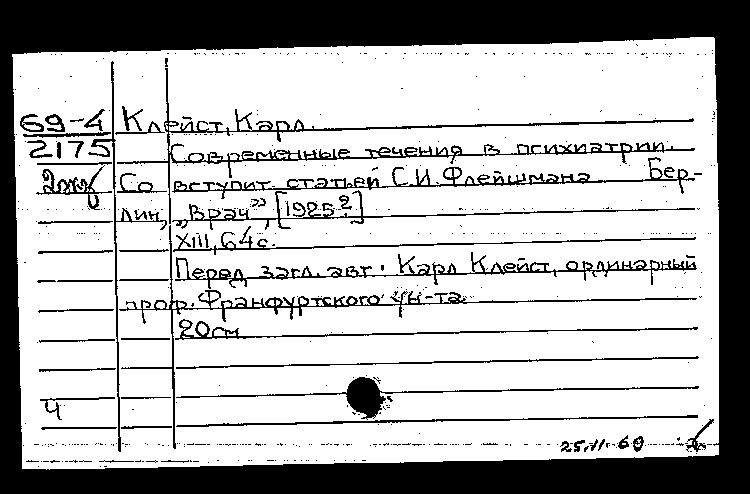 69-4 Клейст, Карл.
2175 Современные течения в психиатрии.
Со вступит. статьей С.И. Флейшмана Бер-
лин, „Врач”, [1925?]
XIII, 64 с.
Перед загл. авт.: Карл Клейст, ординарный
проф. Франфуртского ун-та.
20 см
Ч
25.VI.69